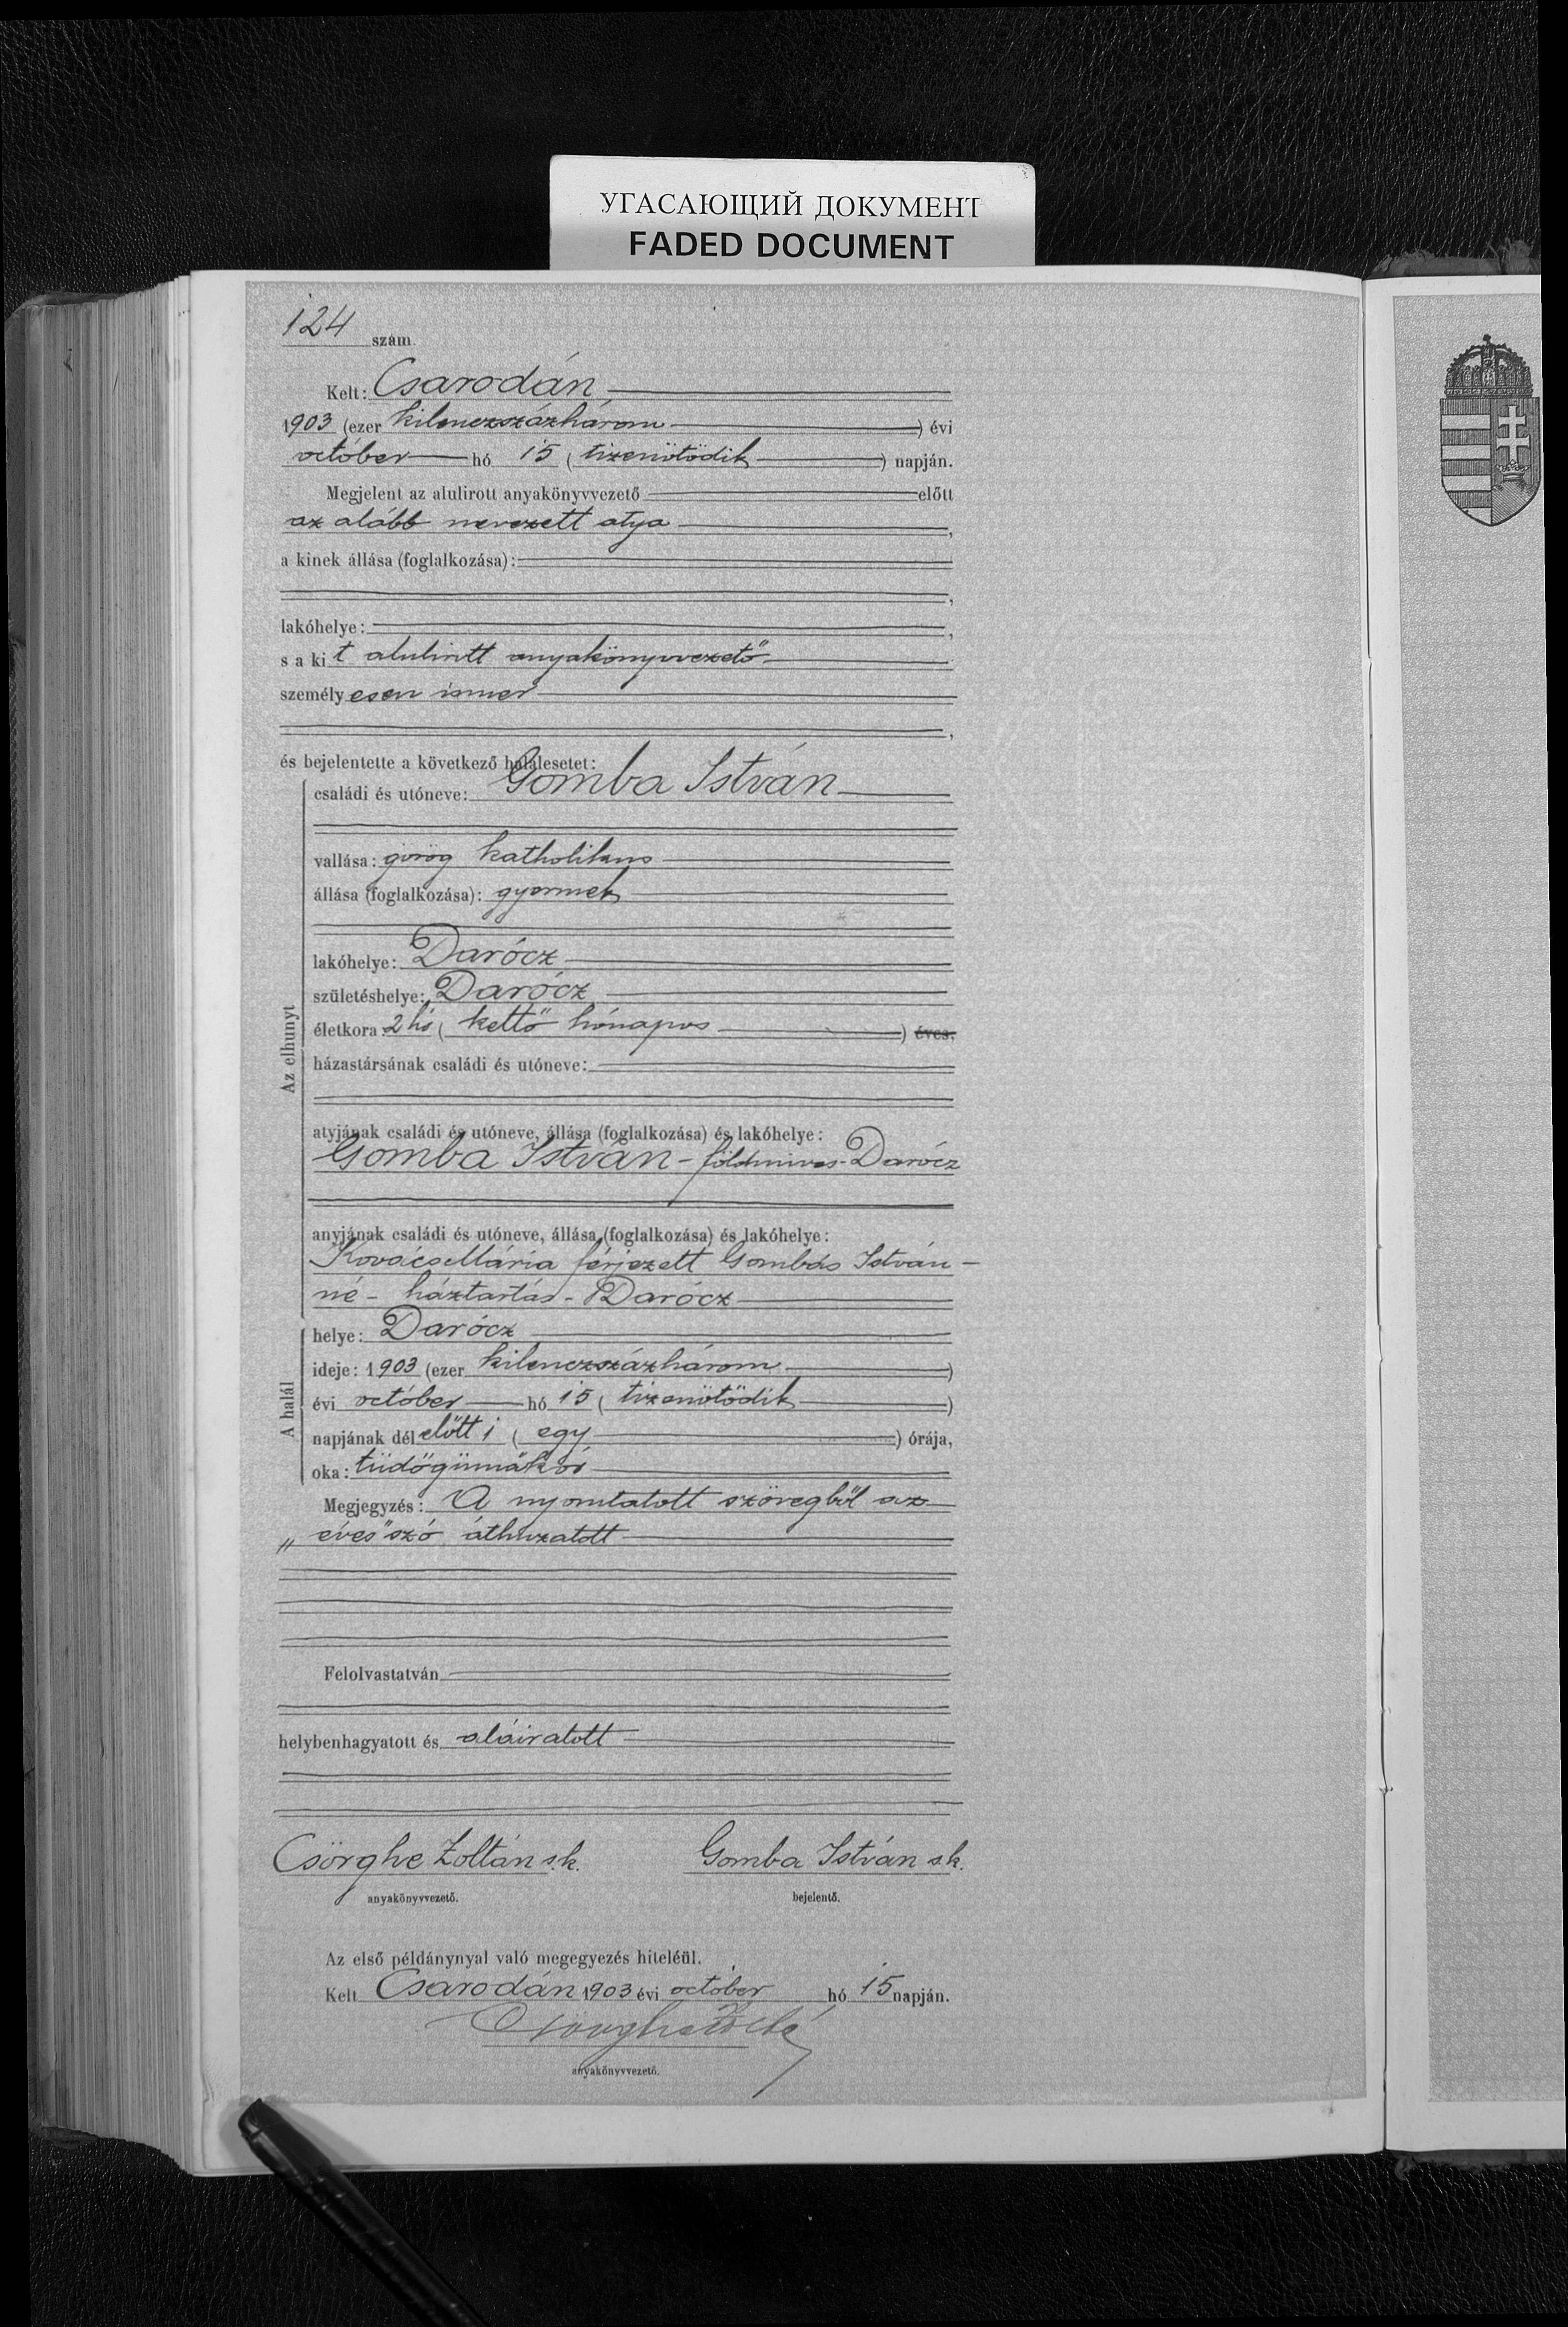 УГАСАЮЩИЙ ДОКУМЕНТ
FADED DOCUMENT
124 szám.
Kelt: Csarodán
1903 (ezer kilenczszázhárom ) évi
október hó 15 ( tizenötödik ) napján.
Megjelent az alulirott anyakönyvvezető előtt
az alább nevezett atya ,
a kinek állása (foglalkozása):
,
lakóhelye: ,
s a kit alulirott anyakönyvvezető
személyesen ismer
,
és bejelentette a következő halálesetet:
családi és utóneve: Gomba István
vallása: görög katholikus
állása (foglalkozása): gyermek
lakóhelye: Darócz
születéshelye: Darócz
Az elhunyt
életkora 2 hó ( kettő hónapos ) éves,
házastársának családi és utóneve:
atyjának családi és utóneve, állása (foglalkozása) és lakóhelye:
Gomba István - földmives - Darócz
anyjának családi és utóneve, állása (foglalkozása) és lakóhelye:
Kovács Mária férjezett Gombás István-
né - háztartás - Darócz
A halál
helye: Darócz
ideje: 1903 (ezer kilenczszázhárom )
évi október hó 15 ( tizenötödik )
napjának délelőtt 1 ( egy ) órája,
oka: tüdőgümőkór
Megjegyzés: A nyomtatott szövegből az
„éves" szó áthuzatott
Felolvastatván
helybenhagyatott és aláiratott
Csörghe Zoltán s.k. Gomba István s.k.
anyakönyvvezető. bejelentő.
Az első példánynyal való megegyezés hiteléül.
Kelt Csarodán 1903 évi október hó 15 napján.
anyakönyvvezető.